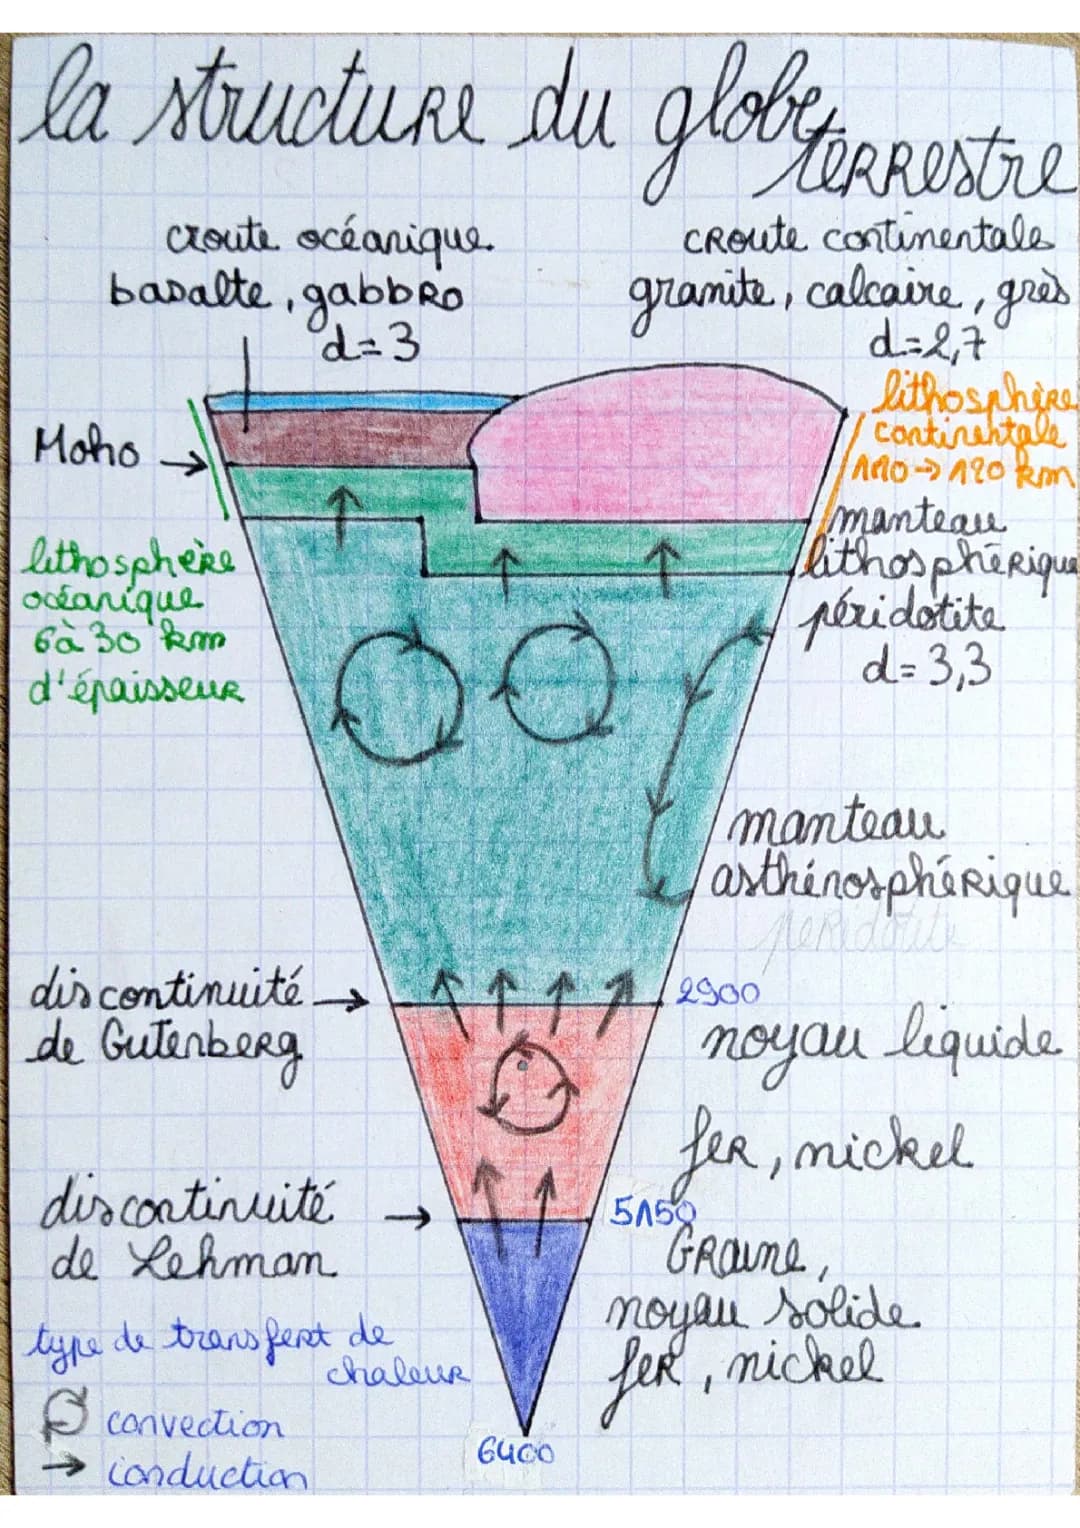 la structure du globe
terrestre
croute océanique
basalte, gabbro
d=3
croute continentale
granite, calcaire, grès
d=2,7
lithosphère
continentale
110→120 km
Moho →
manteau
lithosphérique
péridotite
d=3,3
lithosphère
océanique
6à 30 km
d'épaisseur
manteau
asthénosphérique
peridotite
discontinuité →
de Gutenberg
2900
noyau liquide
fer, nickel
discontinuité →
de Lehman
5150
Graine,
noyau solide
fer, nickel
type de transfert de
chaleur
convection
→ conduction
6400